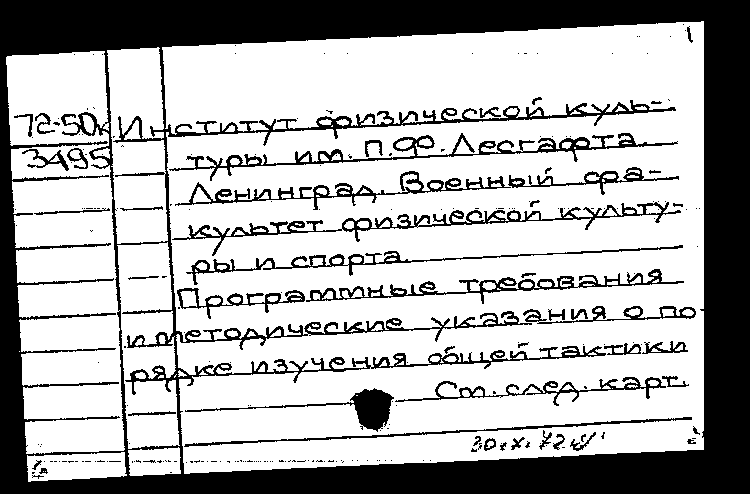 1
72-50к Институт физической куль-
3495 туры им. П.Ф. Лесгафта.
Ленинград. Военный фа-
культет физической культу-
ры и спорта.
Программные требования
и методические указания о по-
рядке изучения общей тактики
См. след. карт.
30.X.72